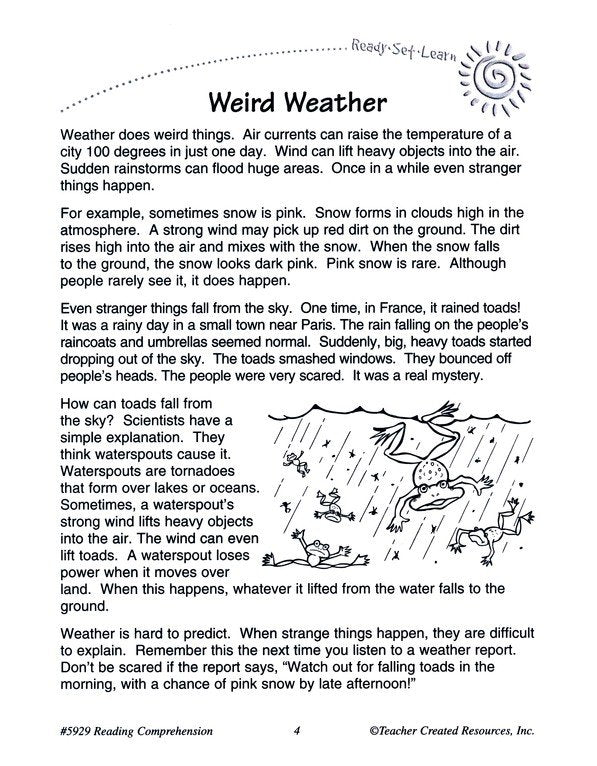 Ready·Set·Learn
Weird Weather
Weather does weird things. Air currents can raise the temperature of a
city 100 degrees in just one day. Wind can lift heavy objects into the air.
Sudden rainstorms can flood huge areas. Once in a while even stranger
things happen.
For example, sometimes snow is pink. Snow forms in clouds high in the
atmosphere. A strong wind may pick up red dirt on the ground. The dirt
rises high into the air and mixes with the snow. When the snow falls
to the ground, the snow looks dark pink. Pink snow is rare. Although
people rarely see it, it does happen.
Even stranger things fall from the sky. One time, in France, it rained toads!
It was a rainy day in a small town near Paris. The rain falling on the people's
raincoats and umbrellas seemed normal. Suddenly, big, heavy toads started
dropping out of the sky. The toads smashed windows. They bounced off
people's heads. The people were very scared. It was a real mystery.
How can toads fall from
the sky? Scientists have a
simple explanation. They
think waterspouts cause it.
Waterspouts are tornadoes
that form over lakes or oceans.
Sometimes, a waterspout's
strong wind lifts heavy objects
into the air. The wind can even
lift toads. A waterspout loses
power when it moves over
land. When this happens, whatever it lifted from the water falls to the
ground.
Weather is hard to predict. When strange things happen, they are difficult
to explain. Remember this the next time you listen to a weather report.
Don't be scared if the report says, "Watch out for falling toads in the
morning, with a chance of pink snow by late afternoon!"
#5929 Reading Comprehension 4 ©Teacher Created Resources, Inc.